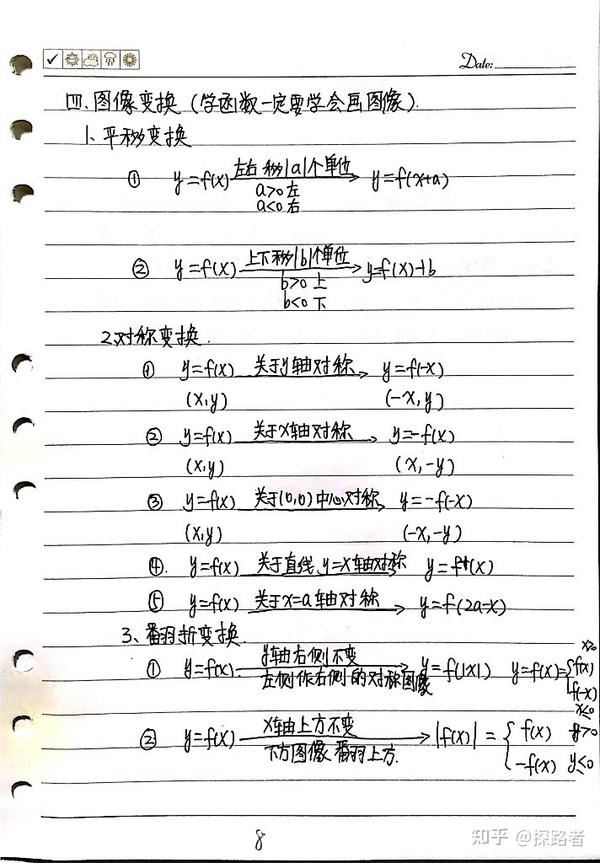 Date:
四、图像变换（学函数一定要学会画图像）.
1、平移变换
① y=f(x) 左右移|a|个单位 y=f(x+a)
a>0 左
a<0 右
② y=f(x) 上下移|b|个单位 y=f(x)+b
b>0 上
b<0 下
2、对称变换.
① y=f(x) 关于y轴对称 y=f(-x)
(x,y) (-x,y)
② y=f(x) 关于x轴对称 y=-f(x)
(x,y) (x,-y)
③ y=f(x) 关于(0,0)中心对称 y=-f(-x)
(x,y) (-x,-y)
④. y=f(x) 关于直线 y=x轴对称 y=f⁻¹(x)
⑤ y=f(x) 关于x=a轴对称 y=f(2a-x)
3、翻折变换.
① y=f(x). y轴右侧不变 y=f(|x|) y=f(x)={f(x) x≥0
左侧作右侧的对称图像 f(-x) x≤0
② y=f(x) x轴上方不变 |f(x)|={f(x) y>0
下方图像翻上方. -f(x) y≤0
8
知乎 @探路者